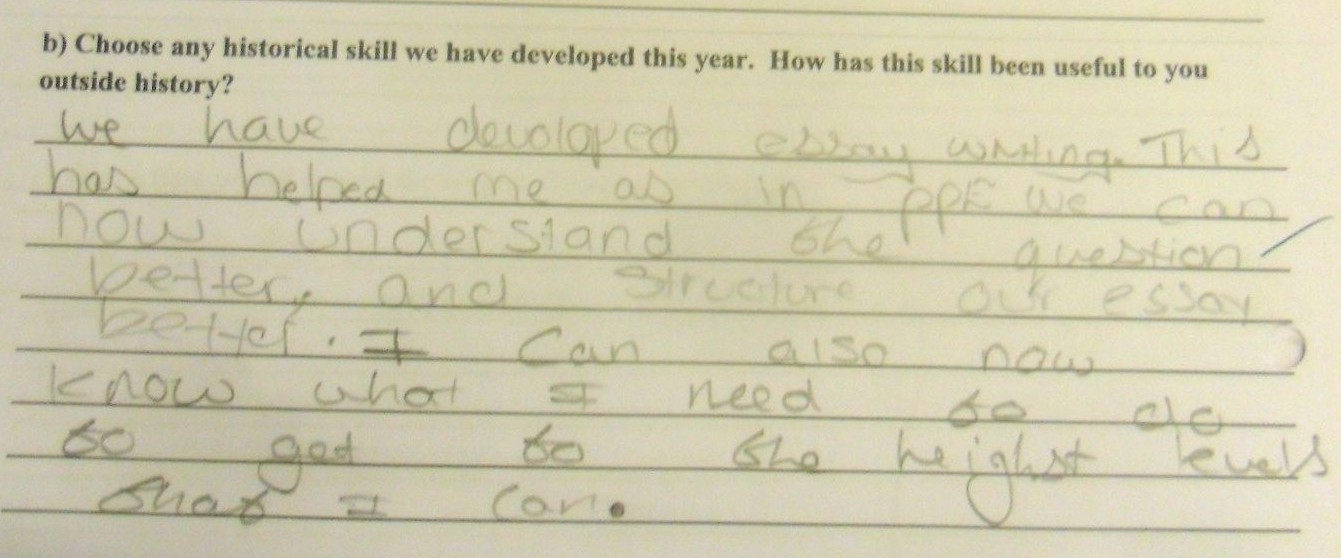 b) Choose any historical skill we have developed this year. How has this skill been useful to you
outside history?
We have devoloped essay writing. This
has helped me as in PPE we can
now understand the question
better, and structure our essay
better. I can also now
know what I need to do
to get to the heighst levels
that I can.